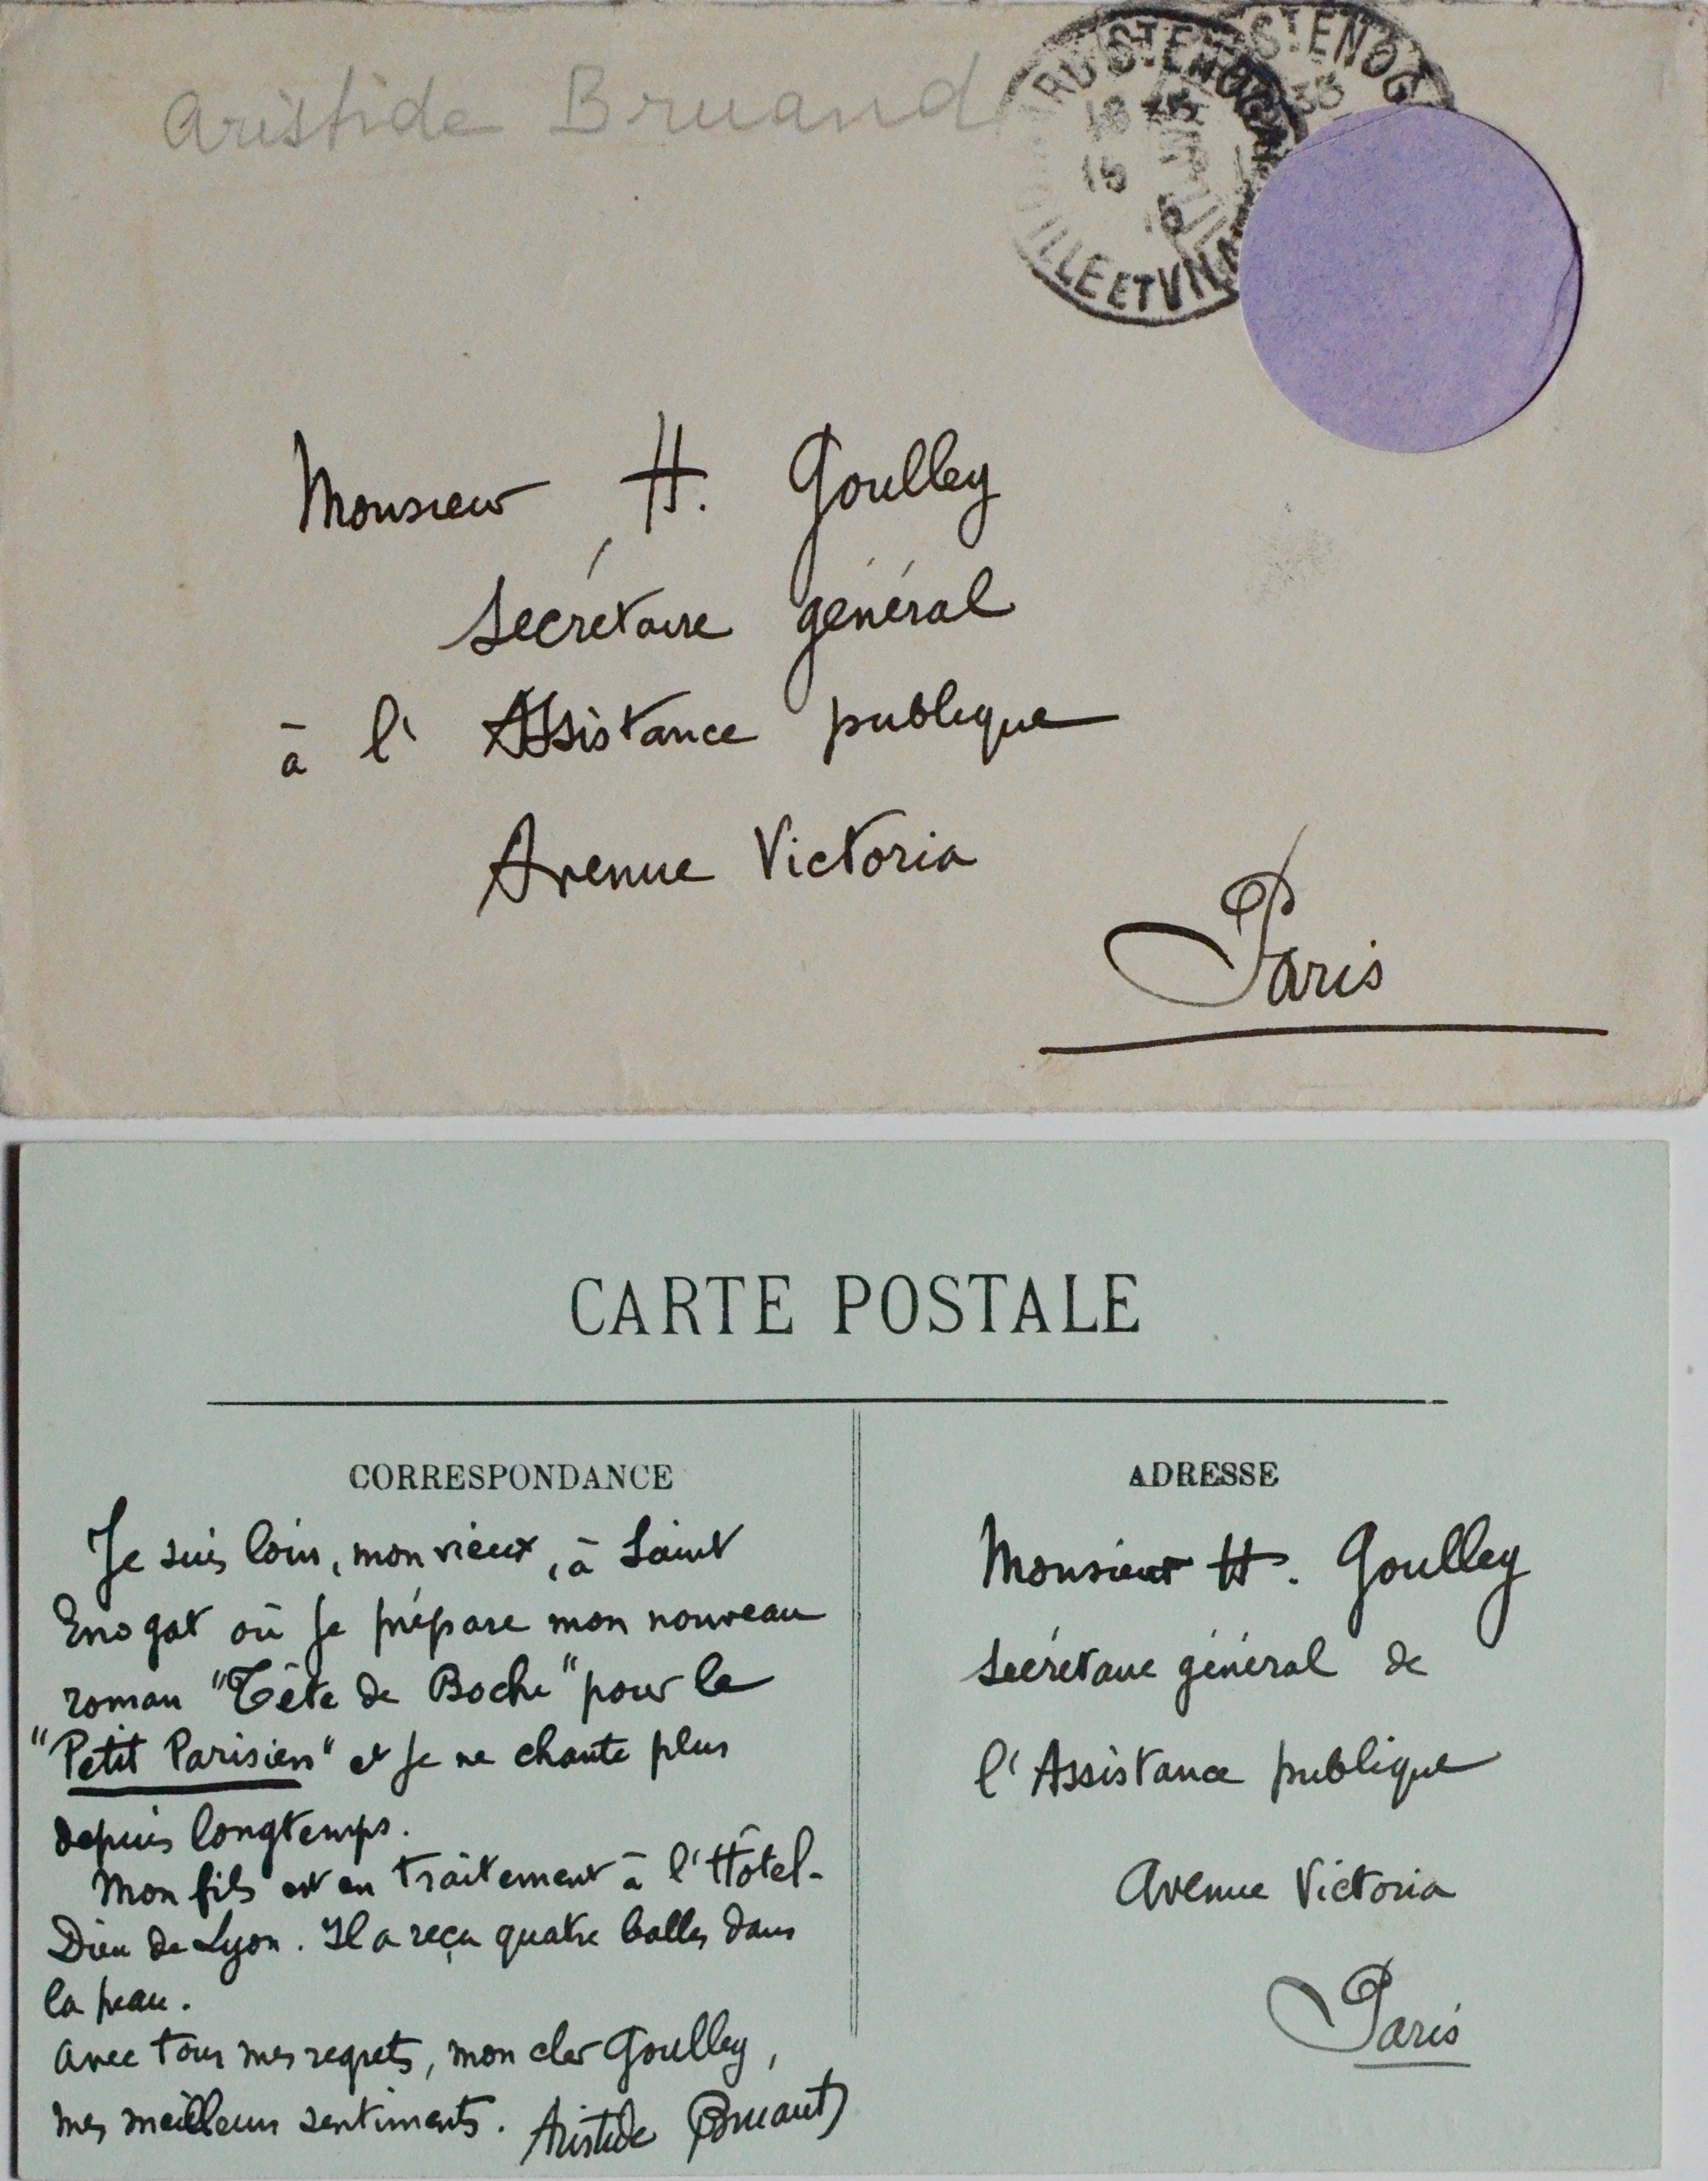 Aristide Bruand
ARD ST ENOGAT
ST ENOG
ILLE ET VILAINE
Monsieur H. Goulley
Secrétaire général
à l'Assistance publique
Avenue Victoria
Paris
CARTE POSTALE
CORRESPONDANCE
Je suis loin, mon vieux, à Saint
Enogat où je prépare mon nouveau
roman "Tête de Boche" pour le
"Petit Parisien" et je ne chante plus
depuis longtemps.
Mon fils est en traitement à l'Hôtel-
Dieu de Lyon. Il a reçu quatre balles dans
la peau.
Avec tous mes regrets, mon cher Goulley,
mes meilleurs sentiments. Aristide Bruant
ADRESSE
Monsieur H. Goulley
Secrétaire général de
l'Assistance publique
Avenue Victoria
Paris